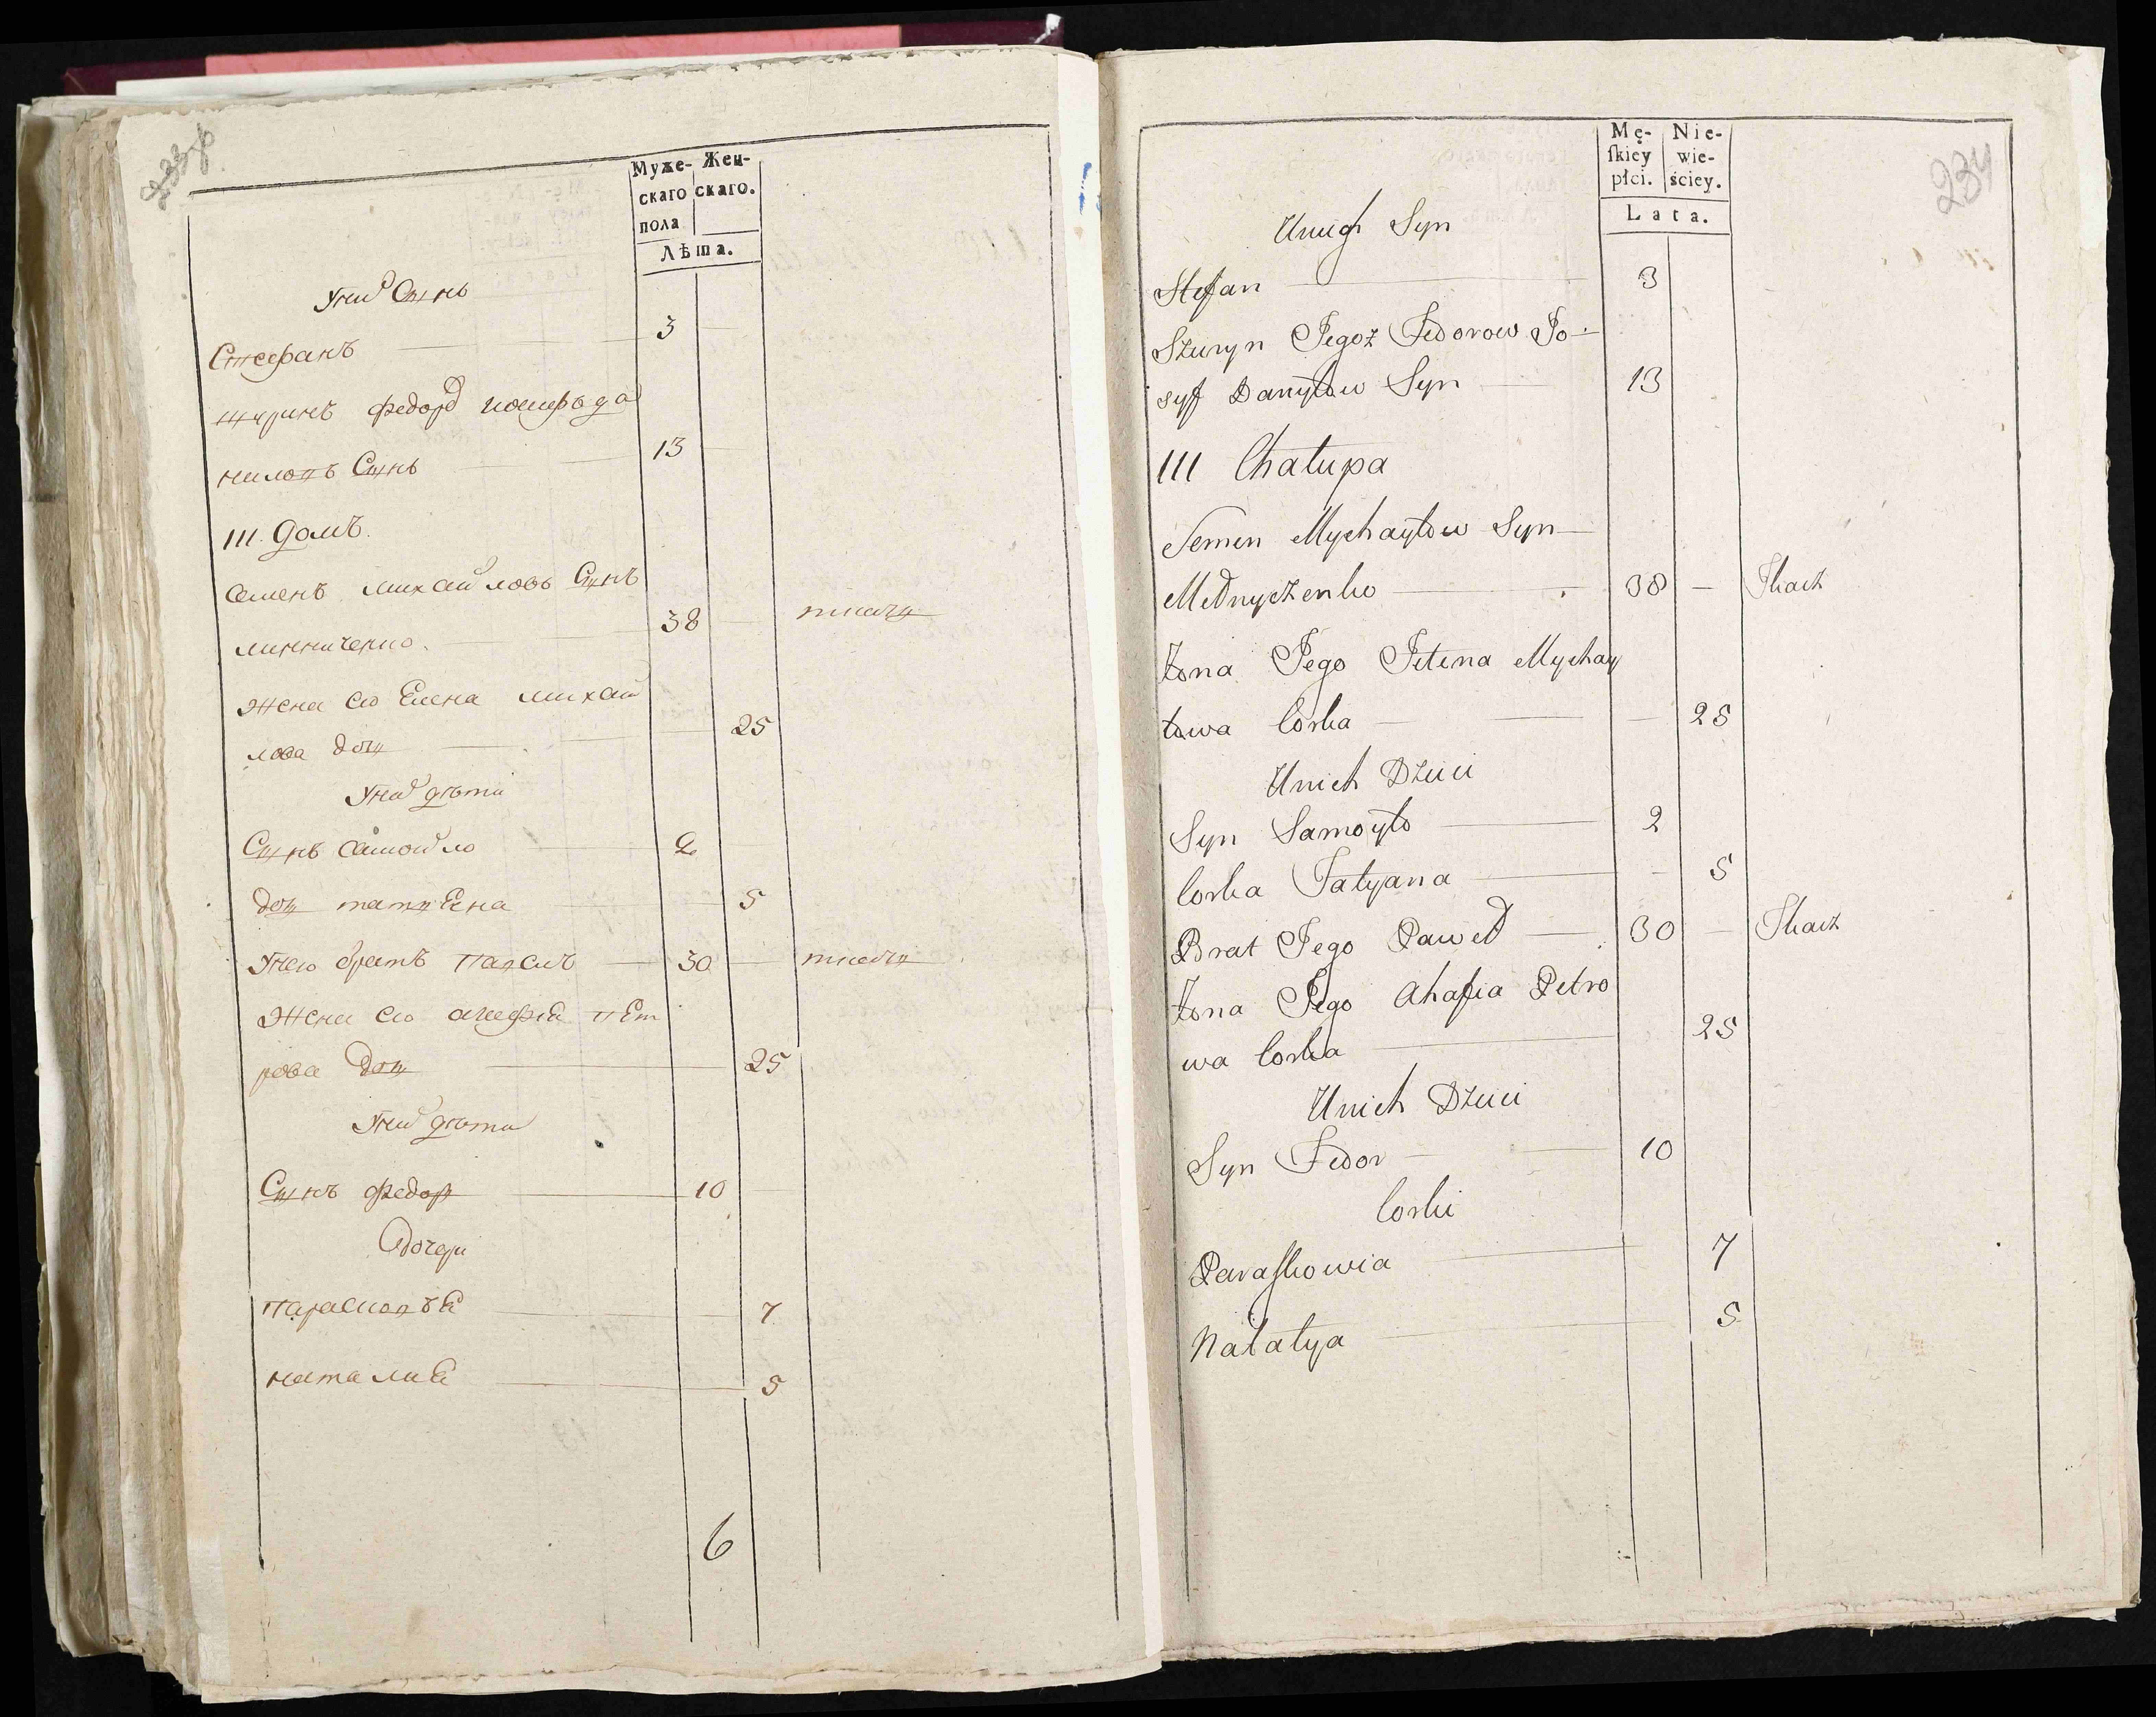 233об
Муже- Жен-
скаго скаго.
пола
Лѣта.
Уних Сынъ
Стефанъ 3
шуринъ федор иосифъ да
ниловъ Сынъ 13
III. Домъ.
Семенъ михайловъ Сынъ
38 ткачъ
Жена его Елена михай
лова дочь 25
Уних дѣти
Сынъ Самойло 2
дочь татиЕна 5
Унего братъ Павелъ 30 ткачъ
Жена его агафiЕ пЕт
рова дочь 25
Уних дѣти
Сынъ федор 10
дочери
ПарасковъЕ 7
наталиЕ 5
6
234
Mę- Nie-
ſkiey wie-
płci. ściey.
Lata.
Unich Syn
Stefan 3
Szuryn Jegoż Fedorow Jo-
syf Danyłow Syn 13
III Chałupa
Semen Mychayłow Syn
38 — Tkacz
Żona Jego Jelena Mychay
łowa Corka — 25
Unich Dzieci
Syn Samoyło 2
Corka Tatyana - 5
Brat Jego Paweł 30 — Tkacz
Żona Jego Ahafia Petro
wa Corka 25
Unich Dzieci
Syn Fedor 10
Corki
Paraſkowia 7
Natalya 5